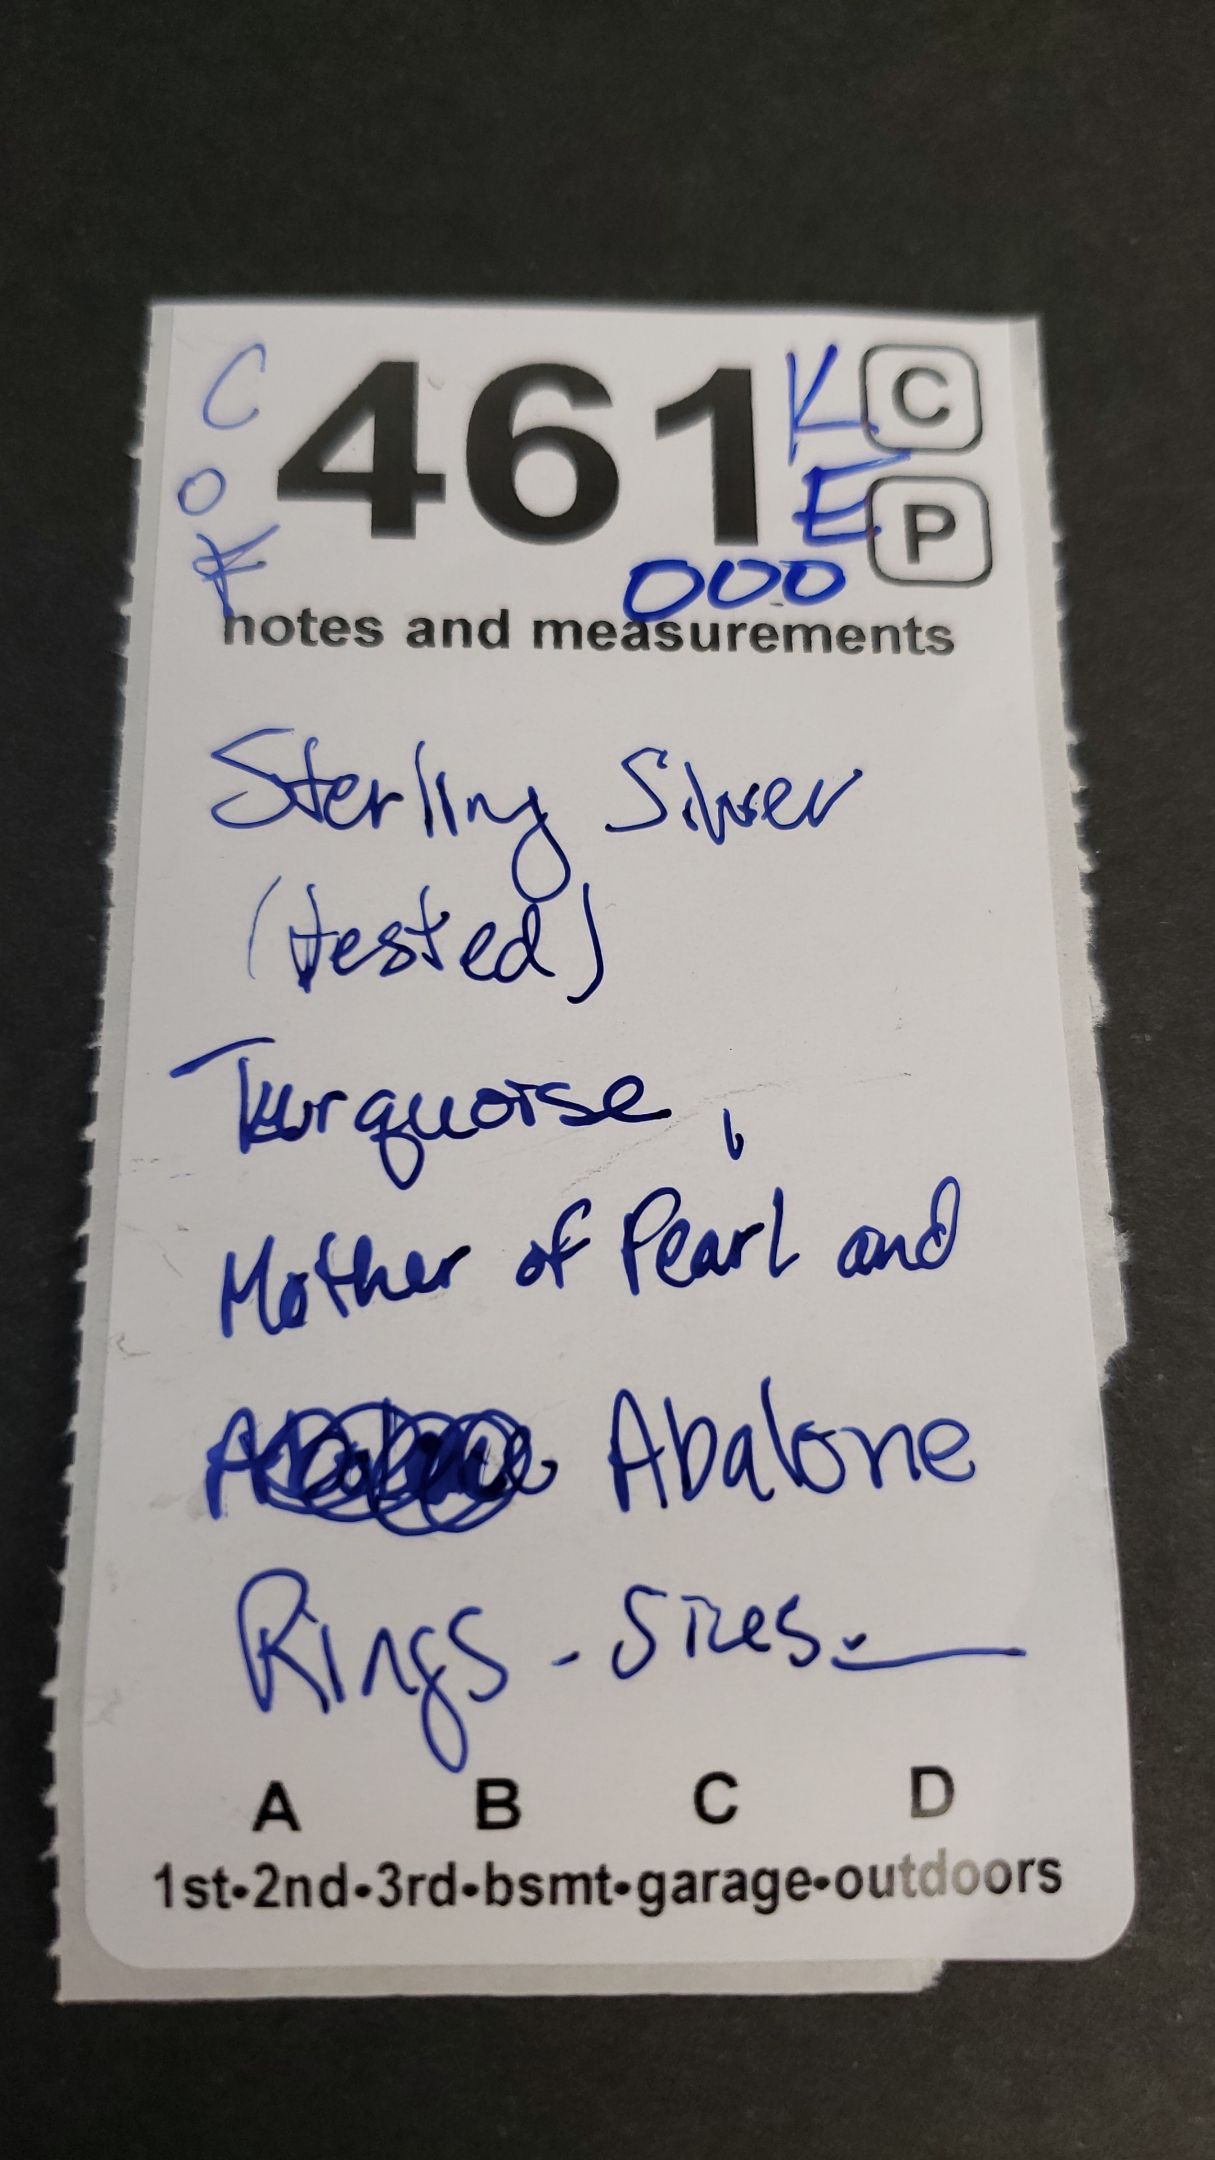 C 461 K C
O E P
F 000
notes and measurements
Sterling Silver
(tested)
Turquoise,
Mother of Pearl and
Abalone
Rings - Sizes-
A B C D
1st•2nd•3rd•bsmt•garage•outdoors